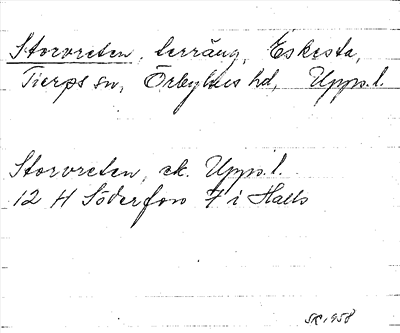 Storvreten, terräng, Eskesta,
Tierps sn, Örbyhus hd, Upps. l.
Storvreten, ek. Upps. l.
12 H Söderfors 7 i Halls
SK 1958